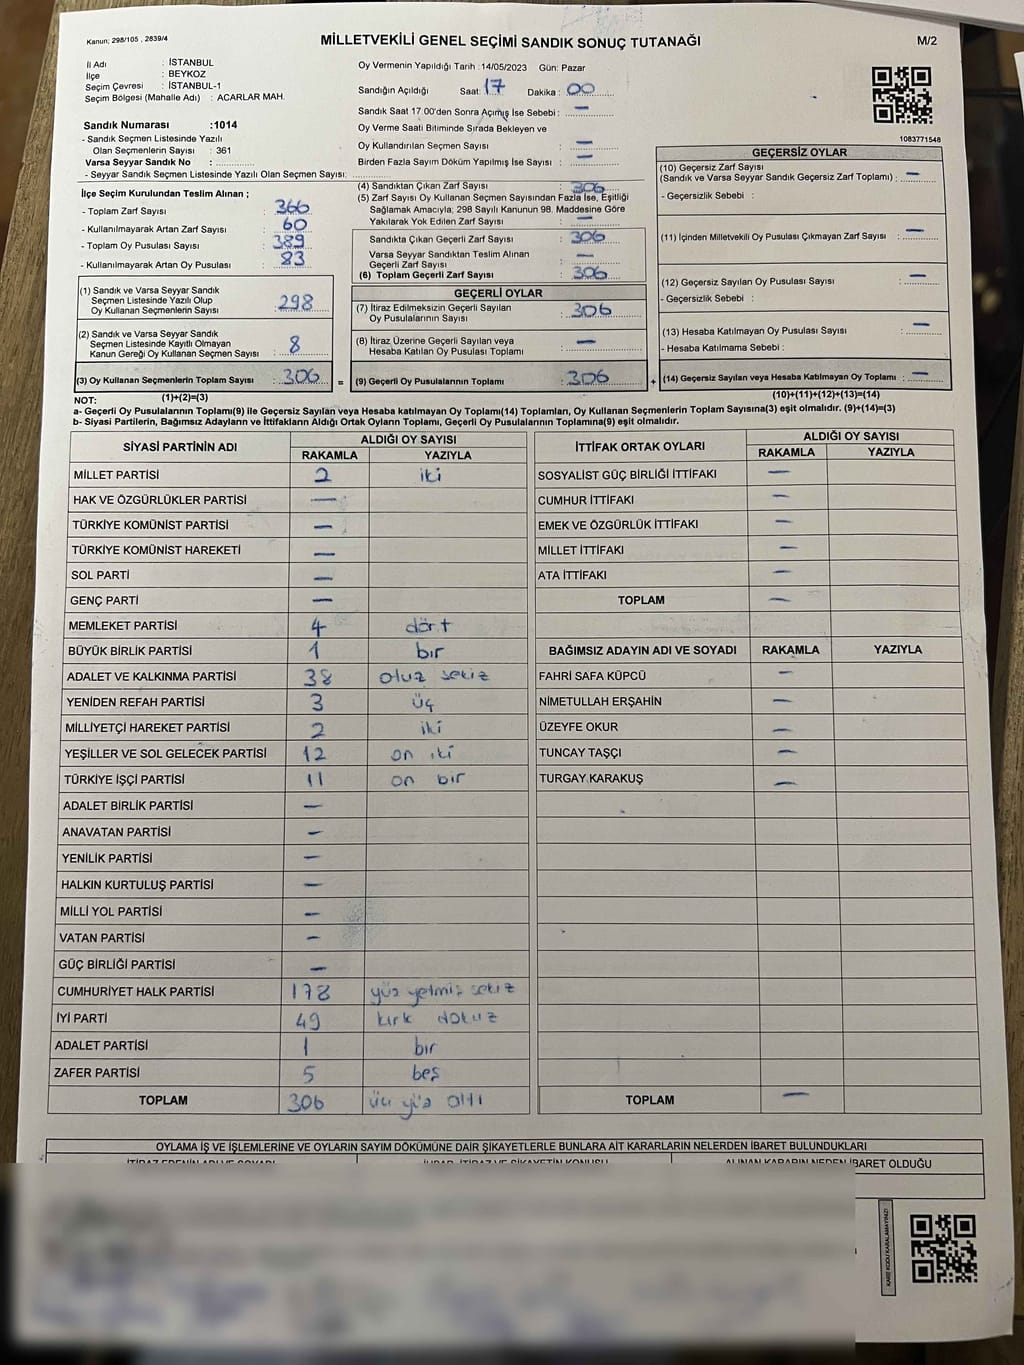 Kanun; 298/105 , 2839/4
MİLLETVEKİLİ GENEL SEÇİMİ SANDIK SONUÇ TUTANAĞI
M/2
İl Adı : İSTANBUL
İlçe : BEYKOZ
Seçim Çevresi : İSTANBUL-1
Seçim Bölgesi (Mahalle Adı) : ACARLAR MAH.
Sandık Numarası :1014
- Sandık Seçmen Listesinde Yazılı
Olan Seçmenlerin Sayısı : 361
Varsa Seyyar Sandık No :
- Seyyar Sandık Seçmen Listesinde Yazılı Olan Seçmen Sayısı:
Oy Vermenin Yapıldığı Tarih :14/05/2023 Gün: Pazar
Sandığın Açıldığı Saat: 17 Dakika : 00
Sandık Saat 17:00'den Sonra Açılmış İse Sebebi : —
Oy Verme Saati Bitiminde Sırada Bekleyen ve
Oy Kullandırılan Seçmen Sayısı : —
Birden Fazla Sayım Döküm Yapılmış İse Sayısı : —
1083771548
İlçe Seçim Kurulundan Teslim Alınan ;
- Toplam Zarf Sayısı : 366
- Kullanılmayarak Artan Zarf Sayısı : 60
- Toplam Oy Pusulası Sayısı : 389
- Kullanılmayarak Artan Oy Pusulası : 83
(1) Sandık ve Varsa Seyyar Sandık
Seçmen Listesinde Yazılı Olup
Oy Kullanan Seçmenlerin Sayısı : 298
(2) Sandık ve Varsa Seyyar Sandık
Seçmen Listesinde Kayıtlı Olmayan
Kanun Gereği Oy Kullanan Seçmen Sayısı : 8
(3) Oy Kullanan Seçmenlerin Toplam Sayısı : 306 =
(1)+(2)=(3)
(4) Sandıktan Çıkan Zarf Sayısı : 306
(5) Zarf Sayısı Oy Kullanan Seçmen Sayısından Fazla İse, Eşitliği
Sağlamak Amacıyla; 298 Sayılı Kanunun 98. Maddesine Göre
Yakılarak Yok Edilen Zarf Sayısı : —
Sandıkta Çıkan Geçerli Zarf Sayısı : 306
Varsa Seyyar Sandıktan Teslim Alınan
Geçerli Zarf Sayısı : —
(6) Toplam Geçerli Zarf Sayısı : 306
GEÇERLİ OYLAR
(7) İtiraz Edilmeksizin Geçerli Sayılan
Oy Pusulalarının Sayısı : 306
(8) İtiraz Üzerine Geçerli Sayılan veya
Hesaba Katılan Oy Pusulası Toplamı : —
(9) Geçerli Oy Pusulalarının Toplamı : 306 +
GEÇERSİZ OYLAR
(10) Geçersiz Zarf Sayısı
(Sandık ve Varsa Seyyar Sandık Geçersiz Zarf Toplamı) : —
- Geçersizlik Sebebi :
(11) İçinden Milletvekili Oy Pusulası Çıkmayan Zarf Sayısı : —
(12) Geçersiz Sayılan Oy Pusulası Sayısı : —
- Geçersizlik Sebebi :
(13) Hesaba Katılmayan Oy Pusulası Sayısı : —
- Hesaba Katılmama Sebebi :
(14) Geçersiz Sayılan veya Hesaba Katılmayan Oy Toplamı : —
(10)+(11)+(12)+(13)=(14)
NOT:
a- Geçerli Oy Pusulalarının Toplamı(9) ile Geçersiz Sayılan veya Hesaba katılmayan Oy Toplamı(14) Toplamları, Oy Kullanan Seçmenlerin Toplam Sayısına(3) eşit olmalıdır. (9)+(14)=(3)
b- Siyasi Partilerin, Bağımsız Adayların ve İttifakların Aldığı Oyların Toplamı, Geçerli Oy Pusulalarının Toplamına(9) eşit olmalıdır.
SİYASİ PARTİNİN ADI ALDIĞI OY SAYISI
RAKAMLA YAZIYLA
MİLLET PARTİSİ 2 iki
HAK VE ÖZGÜRLÜKLER PARTİSİ —
TÜRKİYE KOMÜNİST PARTİSİ —
TÜRKİYE KOMÜNİST HAREKETİ —
SOL PARTİ —
GENÇ PARTİ —
MEMLEKET PARTİSİ 4 dört
BÜYÜK BİRLİK PARTİSİ 1 bir
ADALET VE KALKINMA PARTİSİ 38 otuz sekiz
YENİDEN REFAH PARTİSİ 3 üç
MİLLİYETÇİ HAREKET PARTİSİ 2 iki
YEŞİLLER VE SOL GELECEK PARTİSİ 12 on iki
TÜRKİYE İŞÇİ PARTİSİ 11 on bir
ADALET BİRLİK PARTİSİ —
ANAVATAN PARTİSİ —
YENİLİK PARTİSİ —
HALKIN KURTULUŞ PARTİSİ —
MİLLİ YOL PARTİSİ —
VATAN PARTİSİ —
GÜÇ BİRLİĞİ PARTİSİ —
CUMHURİYET HALK PARTİSİ 178 yüz yetmiş sekiz
İYİ PARTİ 49 kırk dokuz
ADALET PARTİSİ 1 bir
ZAFER PARTİSİ 5 beş
TOPLAM 306 üç yüz altı
İTTİFAK ORTAK OYLARI ALDIĞI OY SAYISI
RAKAMLA YAZIYLA
SOSYALİST GÜÇ BİRLİĞİ İTTİFAKI —
CUMHUR İTTİFAKI —
EMEK VE ÖZGÜRLÜK İTTİFAKI —
MİLLET İTTİFAKI —
ATA İTTİFAKI —
TOPLAM —
BAĞIMSIZ ADAYIN ADI VE SOYADI RAKAMLA YAZIYLA
FAHRİ SAFA KÜPCÜ —
NİMETULLAH ERŞAHİN —
ÜZEYFE OKUR —
TUNCAY TAŞÇI —
TURGAY KARAKUŞ —
TOPLAM —
OYLAMA İŞ VE İŞLEMLERİNE VE OYLARIN SAYIM DÖKÜMÜNE DAİR ŞİKAYETLERLE BUNLARA AİT KARARLARIN NELERDEN İBARET BULUNDUKLARI
İTİRAZ EDENİN ADI VE SOYADI İHBAR, İTİRAZ VE ŞİKAYETİN KONUSU ALINAN KARARIN NEDEN İBARET OLDUĞU
KARE KODU KARALAMAYINIZ!